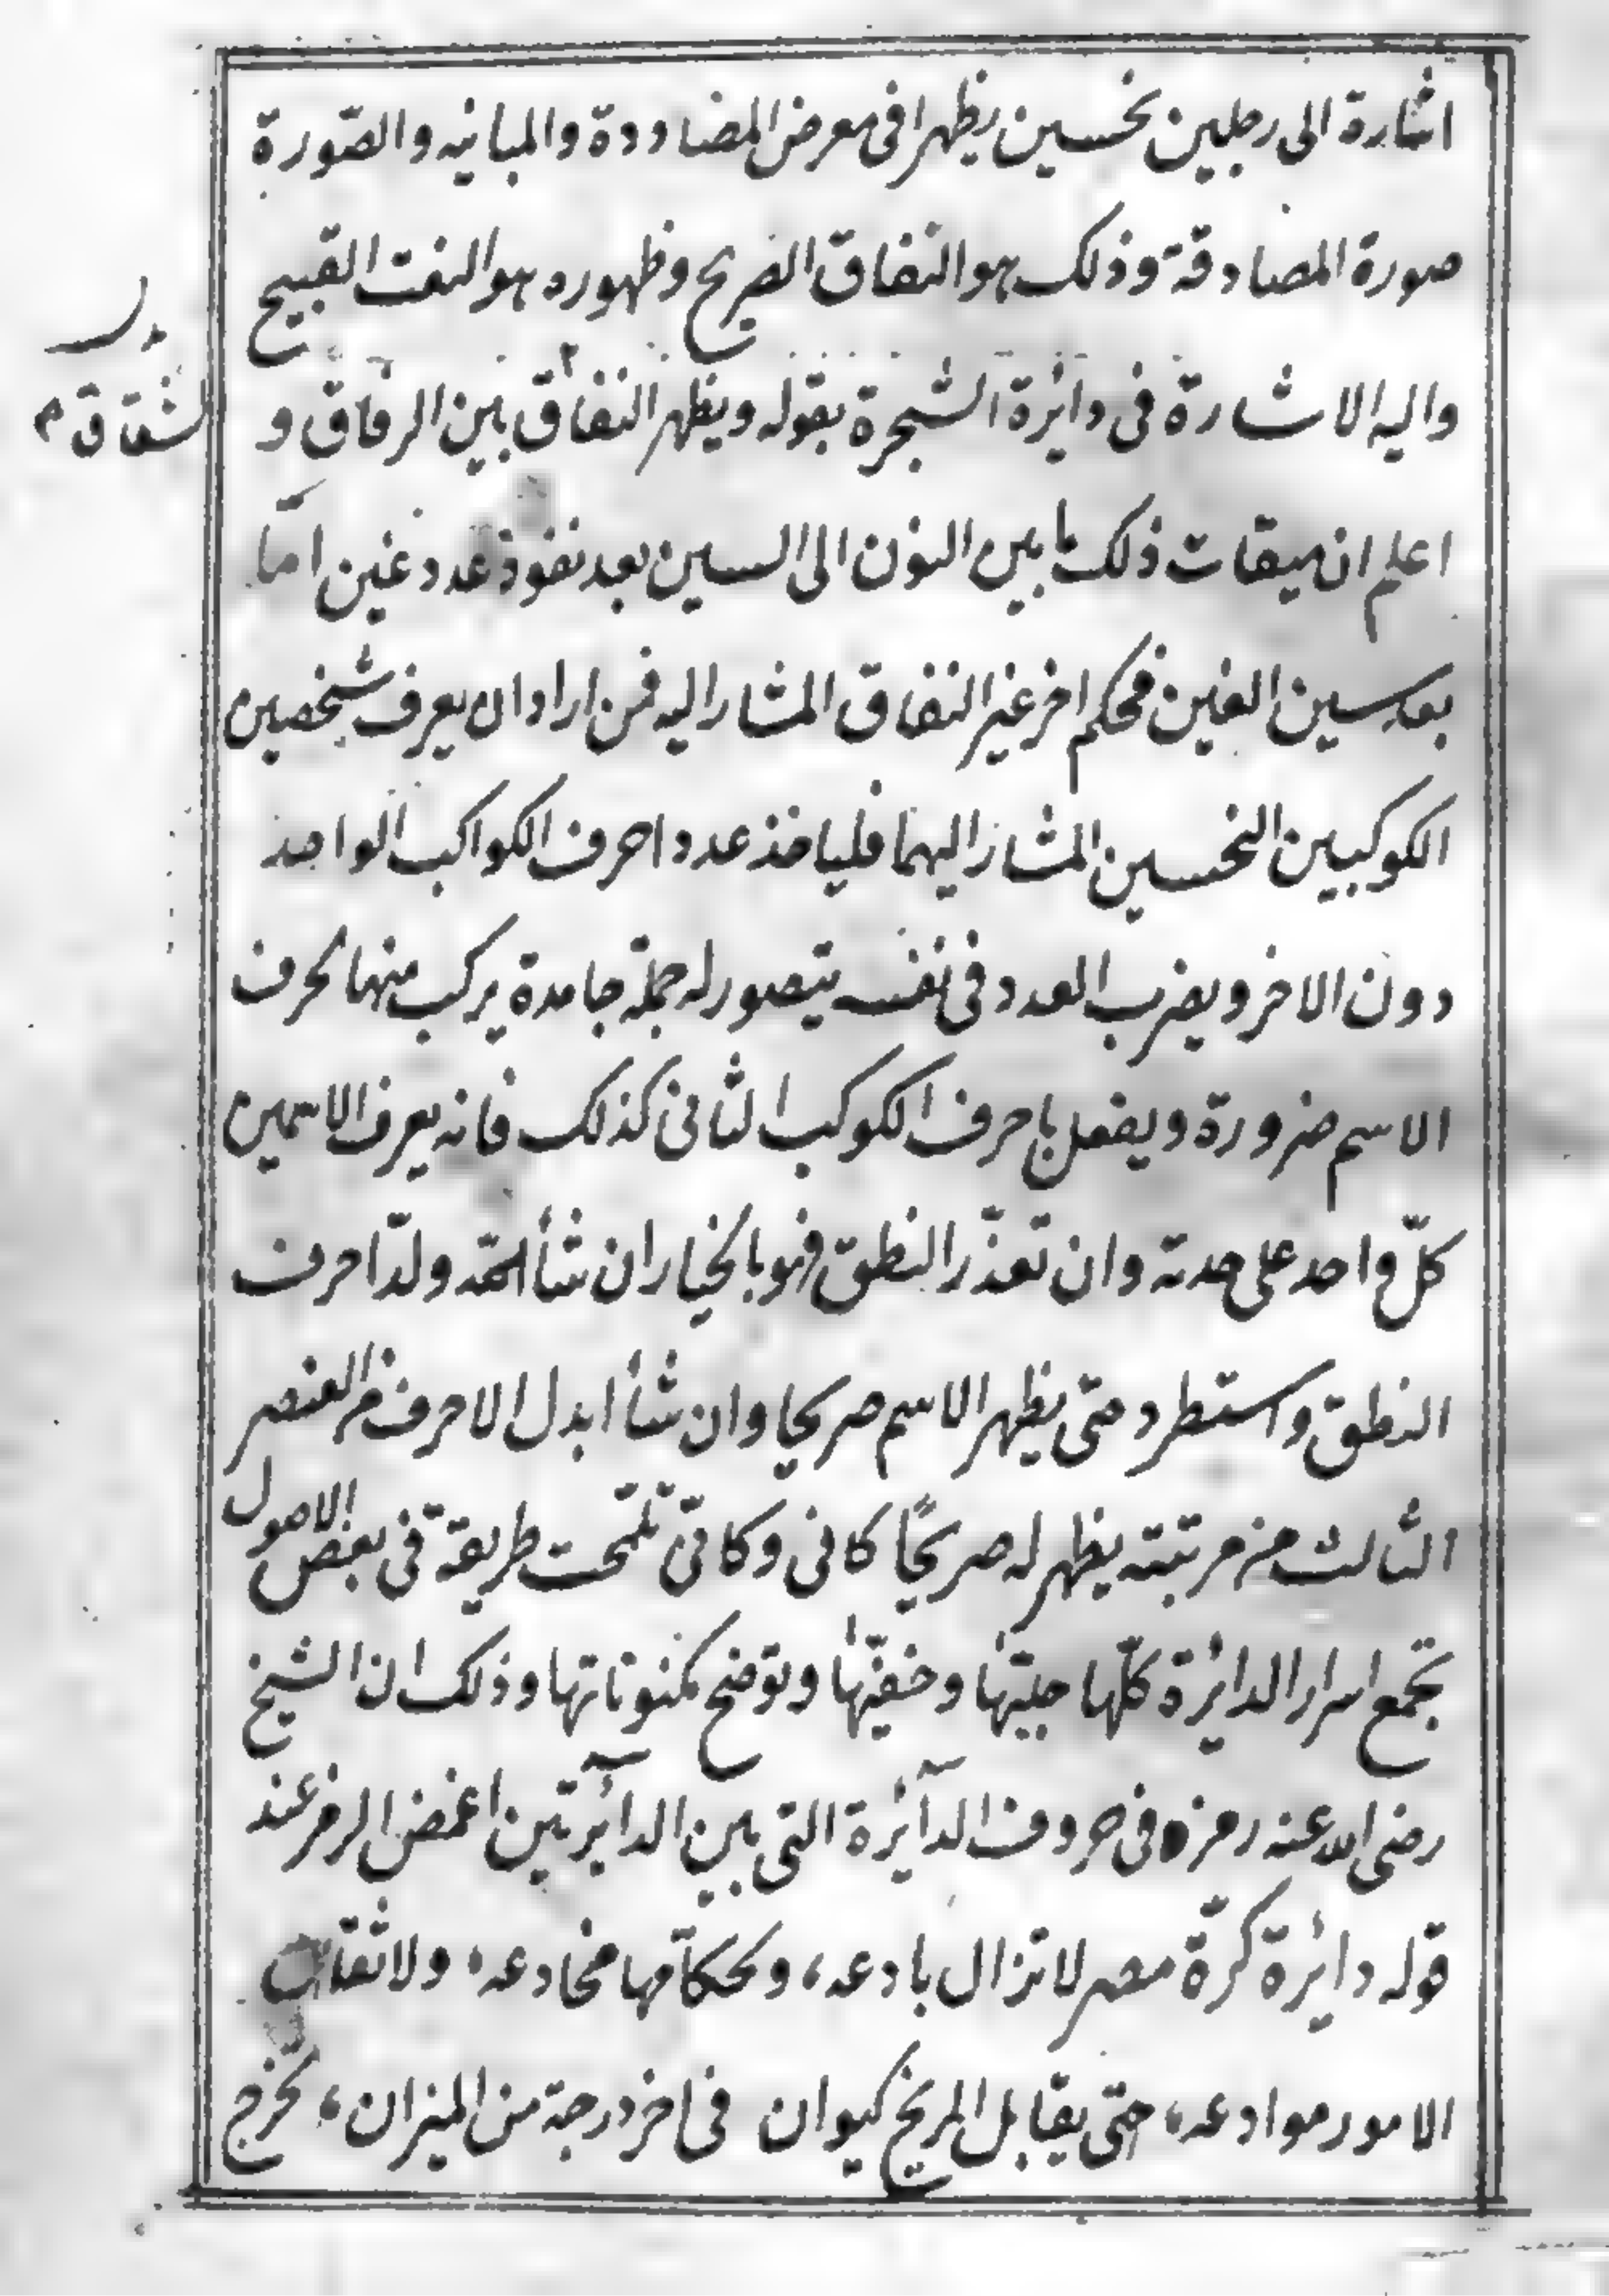 اشارة الى رجلين نحسين يظهرا فى معرض المضاددة والمباينه والصّورة
صورة المصادقة وذلك هو النفاق الصريح وظهوره هو النعت القبيح
واليه الاشارة فى دائرة الشجرة بقوله ويظهر النفاق بين الرفاق و
الشقاق
اعلم ان ميقات ذلك ما بين النون الى السين بعد نفوذ عدد غين امّا
بعد سين الغين فحكم اخر غير النفاق المشار اليه فمن اراد ان يعرف شخصين
الكوكبين النحسين المشار اليهما فلياخذ عدد احرف الكواكب الواحد
دون الاخر ويضرب العدد فى نفسه يتصور له جملة جامدة يركب منها احرف
الاسم ضرورة ويفعل باحرف الكوكب الثانى كذلك فانه يعرف الاسمين
كلّ واحد على حدته وان تعذّر النطق فهو بالخيار ان شأ الحقه ولدّا حرف
النطق واستطرد حتى يظهر الاسم صريحا وان شأ ابدل الاحرف من العنصر
الثالث من مرتبته يظهر له صريحًا كافى وكافىّ تلمّحت طريقة فى بعض الاصول
تجمع اسرار الدائرة كلّها جليّها وخفيّها وتوضح مكنوناتها وذلك ان الشيخ
رضى الله عنه رمزه فى حروف الدآئرة التى بين الدآئرتين اغمض الرمز عند
قوله دائرة كرّة مصر لا تزال بادعه، وحكآمها مخادعه، ولا ثقات
الامور موادعه، حتى يقابل المريخ كيوان فى اخر درجة من الميزان، تخرج